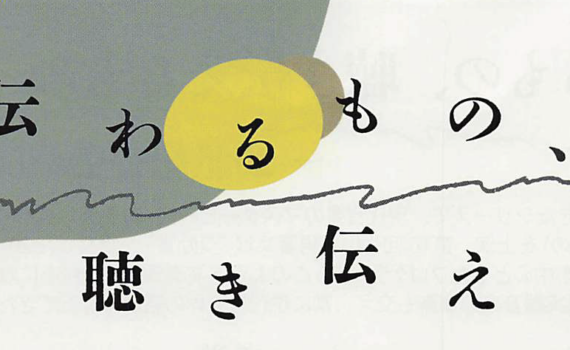 伝わるもの、
聴き伝え